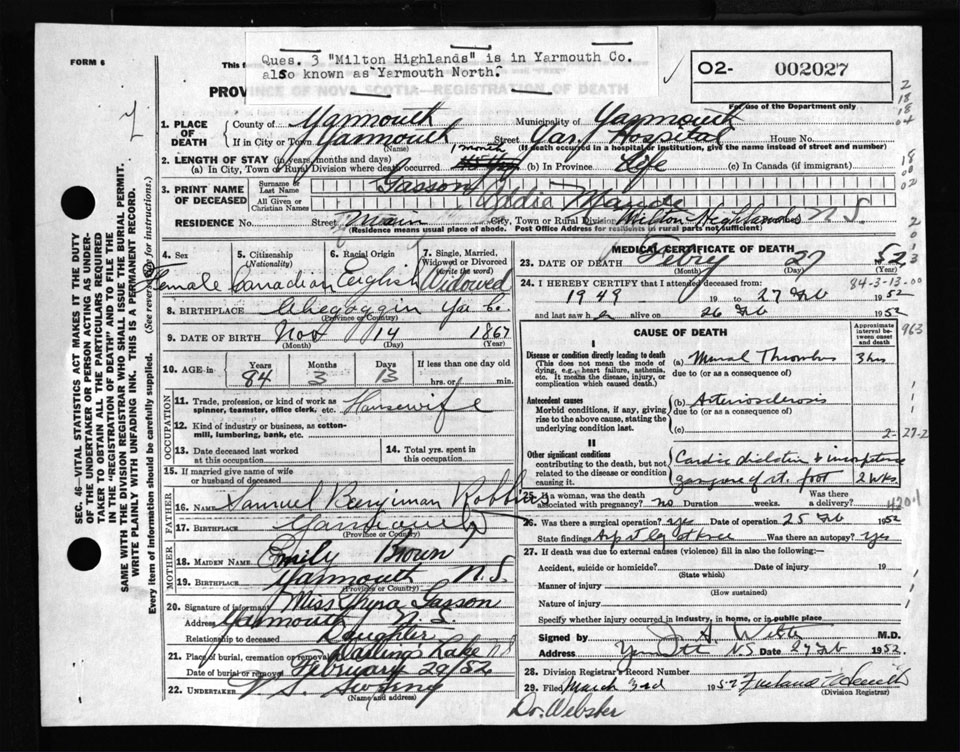 FORM 6
Ques. 3 "Milton Highlands" is in Yarmouth Co.
also known as Yarmouth North.
PROVINCE OF NOVA SCOTIA—REGISTRATION OF DEATH
O2- 002027
For use of the Department only
1. PLACE OF DEATH
County of Yarmouth Municipality of Yarmouth
If in City or Town Yarmouth Street Yar. Hospital House No.
(Name) (If death occurred in a hospital or institution, give the name instead of street and number)
2. LENGTH OF STAY (in years, months and days)
(a) In City, Town or Rural Division where death occurred 1 month (b) In Province Life (c) In Canada (if immigrant)
3. PRINT NAME OF DECEASED
Surname or Last Name Sasson
All Given or Christian Names Addie Maude
RESIDENCE No. Street Main City, Town or Rural Division Milton Highlands N.S.
(Residence means usual place of abode. Post Office Address for residents in rural parts not sufficient)
4. Sex Female
5. Citizenship (Nationality) Canadian
6. Racial Origin English
7. Single, Married, Widowed or Divorced (write the word) Widowed
8. BIRTHPLACE Chegoggin Yar Co.
(Province or Country)
9. DATE OF BIRTH Nov 14 1867
(Month) (Day) (Year)
10. AGE in Years 84 Months 3 Days 13 If less than one day
hrs. or min.
OCCUPATION
11. Trade, profession, or kind of work as spinner, teamster, office clerk, etc. Housewife
12. Kind of industry or business, as cotton-mill, lumbering, bank, etc.
13. Date deceased last worked at this occupation
14. Total yrs. spent in this occupation
15. If married give name of wife or husband of deceased
FATHER
16. NAME Samuel Benjiman Robbins
17. BIRTHPLACE Yarmouth
(Province or Country)
MOTHER
18. MAIDEN NAME Emily Brown
19. BIRTHPLACE Yarmouth N.S.
(Province or Country)
20. Signature of informant Miss Sasson
Address Yarmouth N.S.
Relationship to deceased Daughter
21. Place of burial, cremation or removal Darlings Lake N.S
Date of burial or removal February 29/52
22. UNDERTAKER V. S. Sweeny
(Name and address)
MEDICAL CERTIFICATE OF DEATH
23. DATE OF DEATH Febry 27 52
(Month) (Day) (Year)
24. I HEREBY CERTIFY that I attended deceased from:
1949 19 to 27 Feb 1952
and last saw her alive on 26 Feb 1952
84-3-13-00
CAUSE OF DEATH
Approximate interval between onset and death
963
I
Disease or condition directly leading to death
(This does not mean the mode of dying, e.g., heart failure, asthenia, etc. It means the disease, injury, or complication which caused death.)
(a) Mural Thrombus 3 hrs
due to (or as a consequence of)
Antecedent causes
Morbid conditions, if any, giving rise to the above cause, stating the underlying condition last.
(b) Arteriosclerosis
due to (or as a consequence of)
(c)
2-27-2
II
Other significant conditions
contributing to the death, but not related to the disease or condition causing it.
Cardiac dilatation & incompetence
gangrene of rt. foot 2 wks.
25. If a woman, was the death associated with pregnancy? no Duration weeks. Was there a delivery?
4201
26. Was there a surgical operation? yes Date of operation 25 Feb 1952
State findings Was there an autopsy? yes
27. If death was due to external causes (violence) fill in also the following:—
Accident, suicide or homicide? Date of injury 19
(State which)
Manner of injury
(How sustained)
Nature of injury
Specify whether injury occurred in industry, in home, or in public place
Signed by M.D.
Address N.S Date 27 Feb 1952
28. Division Registrar's Record Number
29. Filed March 3rd 1952
(Division Registrar)
Dr. Webster
SEC. 46—VITAL STATISTICS ACT MAKES IT THE DUTY
OF THE UNDERTAKER OR PERSON ACTING AS UNDER-
TAKER TO OBTAIN ALL THE PARTICULARS REQUIRED
IN THE "REGISTRATION OF DEATH" AND TO FILE THE
SAME WITH THE DIVISION REGISTRAR WHO SHALL ISSUE THE BURIAL PERMIT.
WRITE PLAINLY WITH UNFADING INK. THIS IS A PERMANENT RECORD.
Every item of information should be carefully supplied. (See reverse side for instructions.)